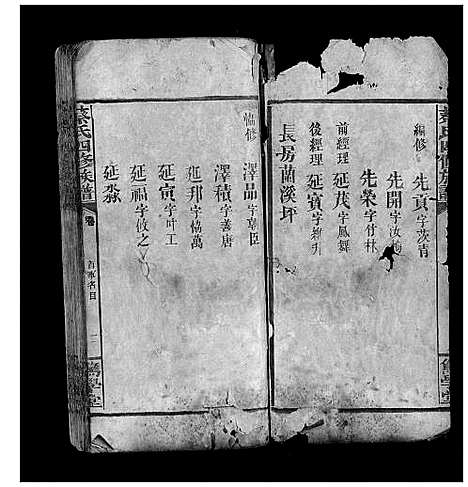 蔡氏四修族譜
編修 先貢字茨青
先開字汝
先榮字竹林
前經理 延茂字鳳舞
後經理 延賓字
長房蘭溪坪
協修 澤品字章臣
澤積字善唐
延邦字協萬
延寅字叶工
延福字攸之
延淼
蔡氏四修族譜
卷
首事名目
二